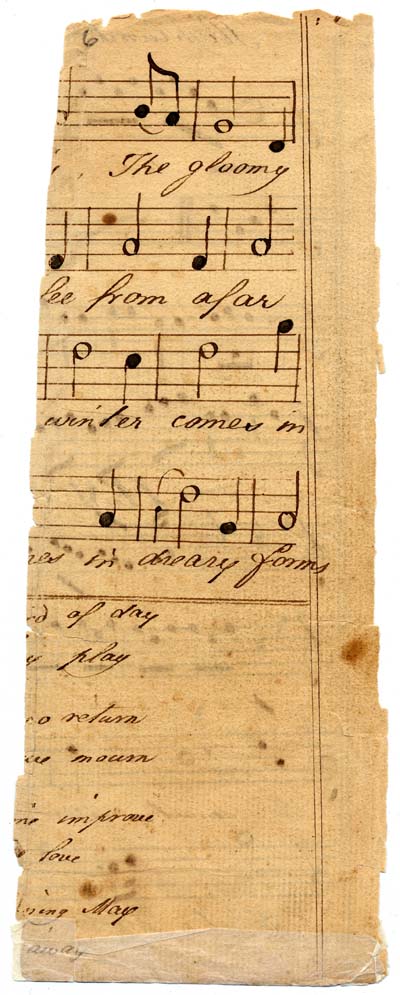 6
The gloomy
from afar
winter comes in
in dreary forms
of day
play
return
mourn
improve
love
May
away